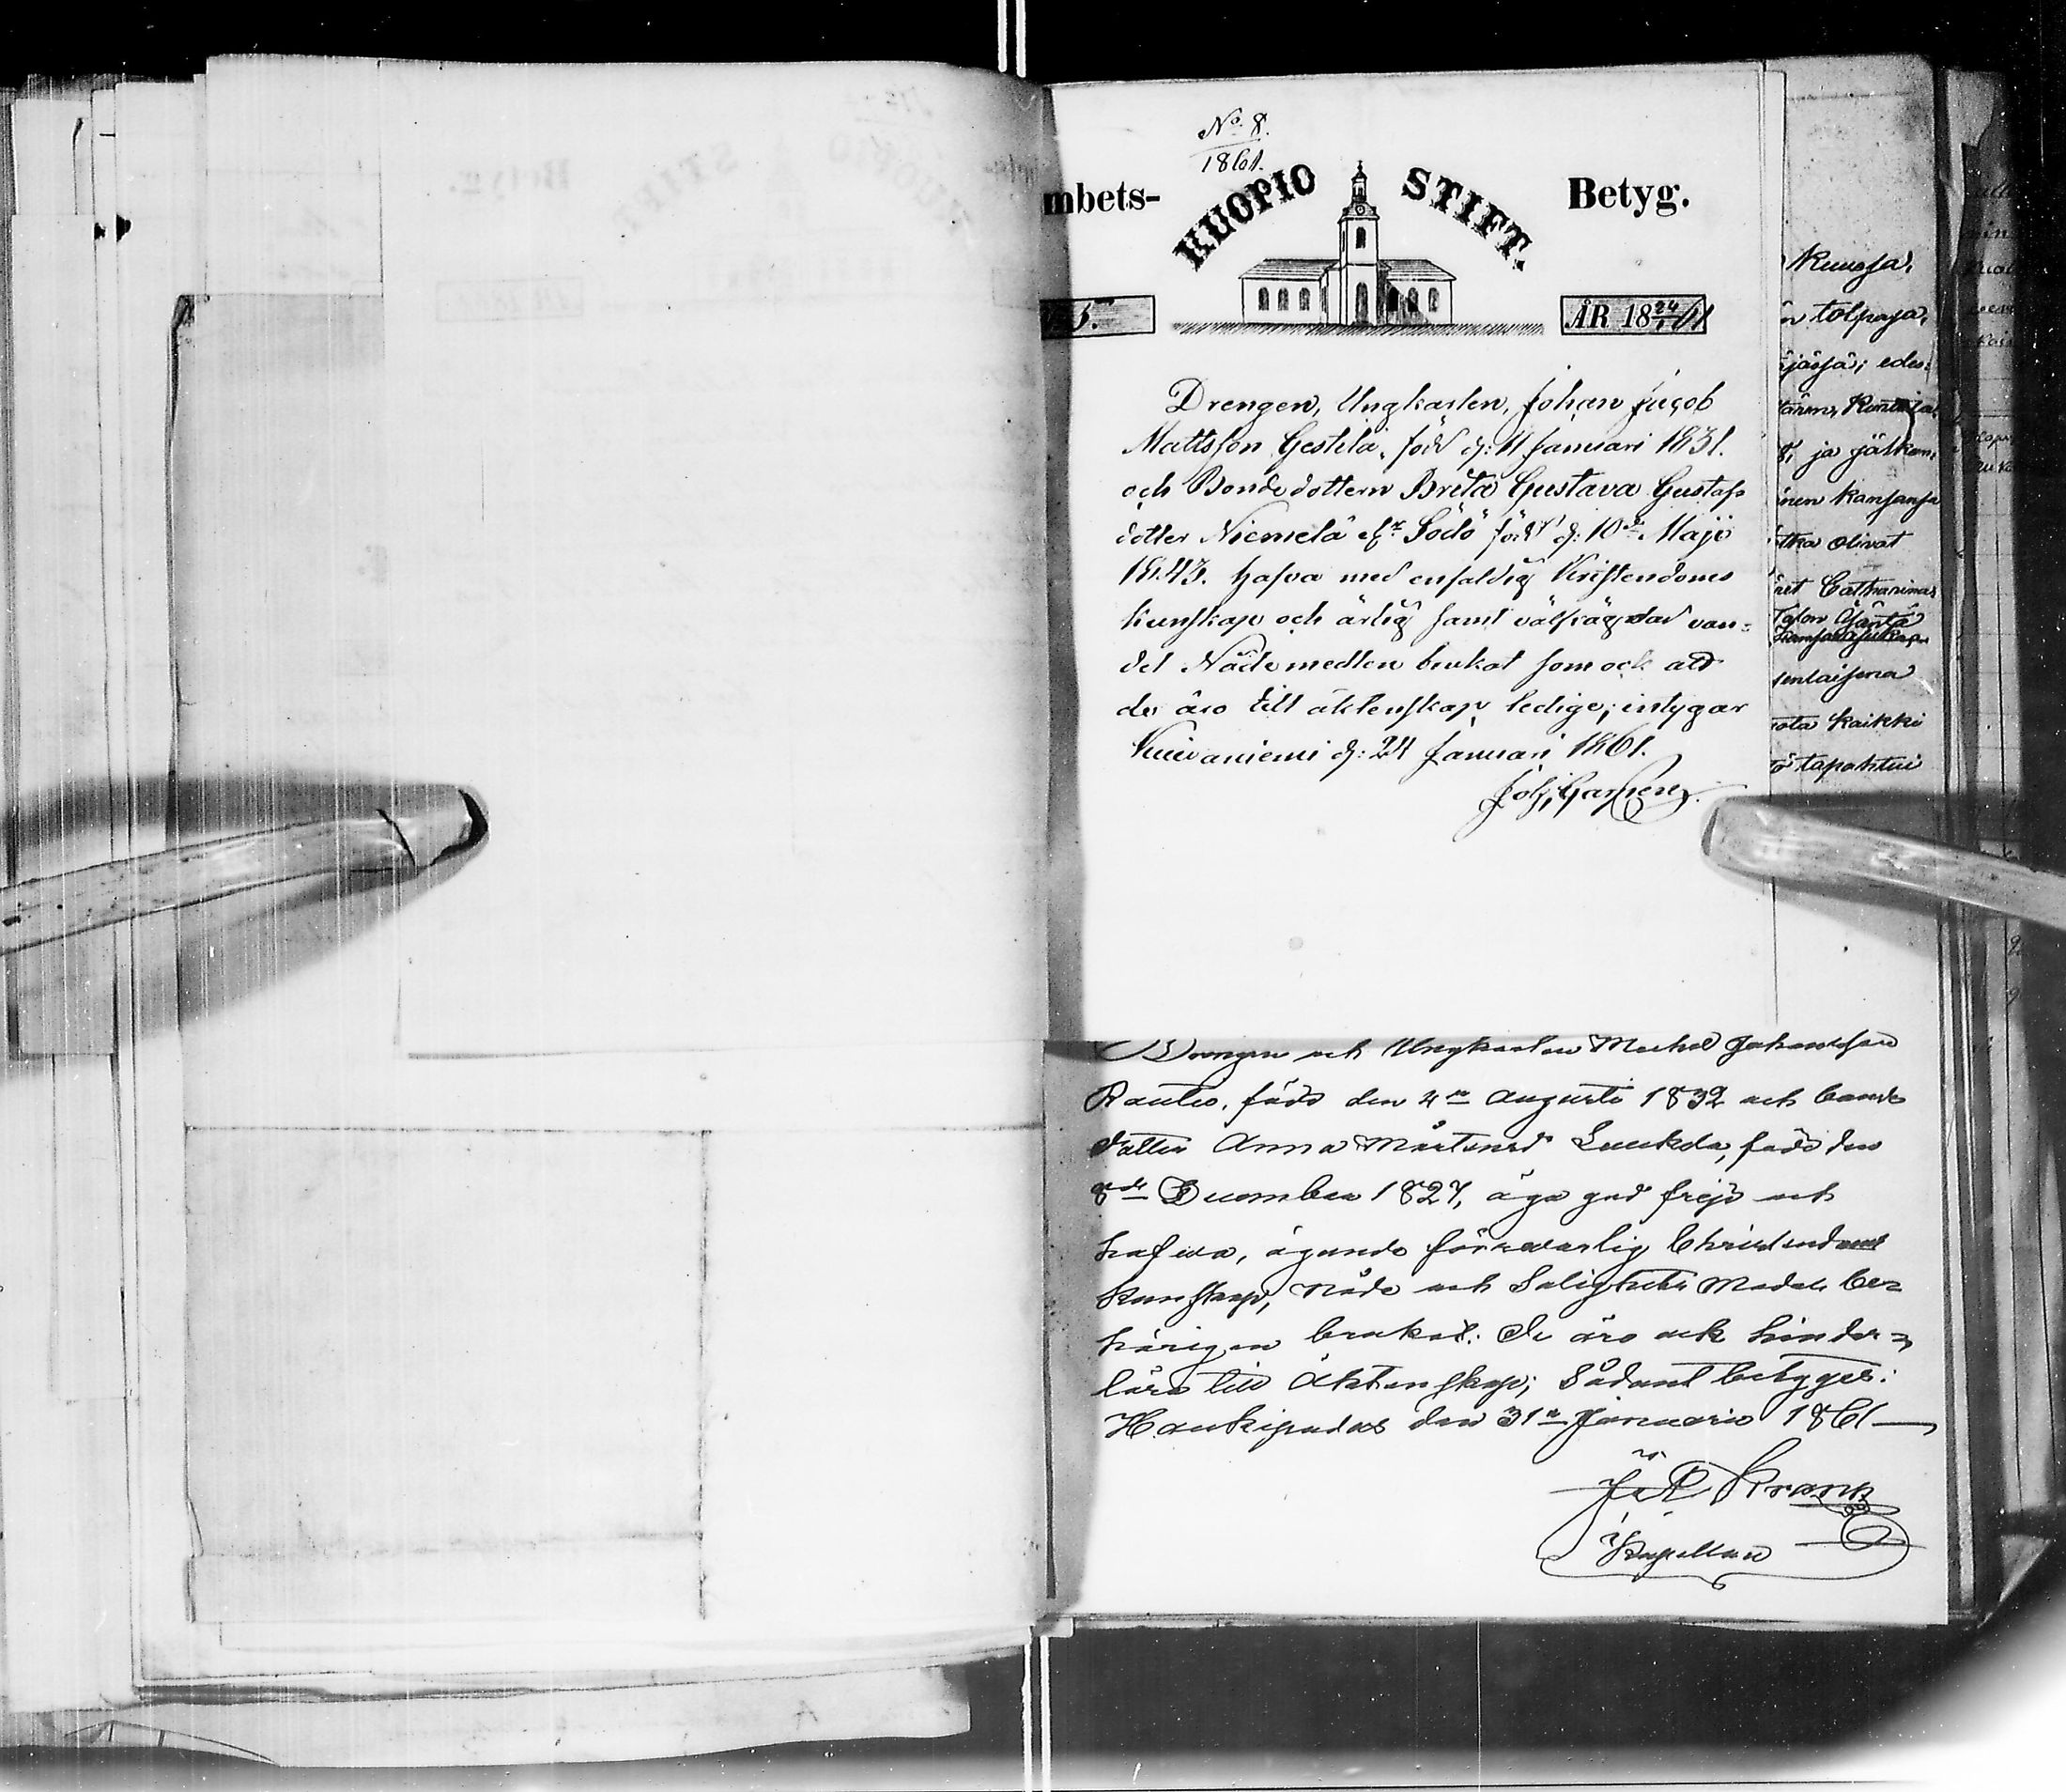 No 8.
1861.
mbets-
KUOPIO STIFT.
Betyg.
5.
ÅR 18 24/1 61
Drengen, Ungkarlen, Johan Jacob
Mattsson Gestilä, född d: 11 Januari 1831.
och Bondedottern Brita Gustava Gustafs
dotter Niemelä fr Södö född d: 10de Maji
1843. hafva med enfaldig Kristendoms
kunskap och ärlig samt välfrägdad van=
del Nådemedlen brukat som ock att
de äro till äktenskap ledige; intygar
Kuivaniemi d: 24 Januari 1861.
Joh:
Drengen och Ungkarlen Michel Johansson
Rautio, född den 4de Augusti 1832 och bonde
dotter Anna Mårtensd född den
8de December 1827, äga god frejd och
hafwa, ägande försvarlig Christendoms
Kunskap, Nåde och Salighets Medel be=
hörigen brukat: De äro ock hinder=
löse till Äktenskap; Sådant betygges:
Haukipudas den 31ta Januari 1861
Kapellan
Kuussa,
n tolpaja,
jässä; edes:
ja jälken,
inen kansansa
tka olivat
ret Catharina
sentaisena
ota kaikki
tö tapahtui